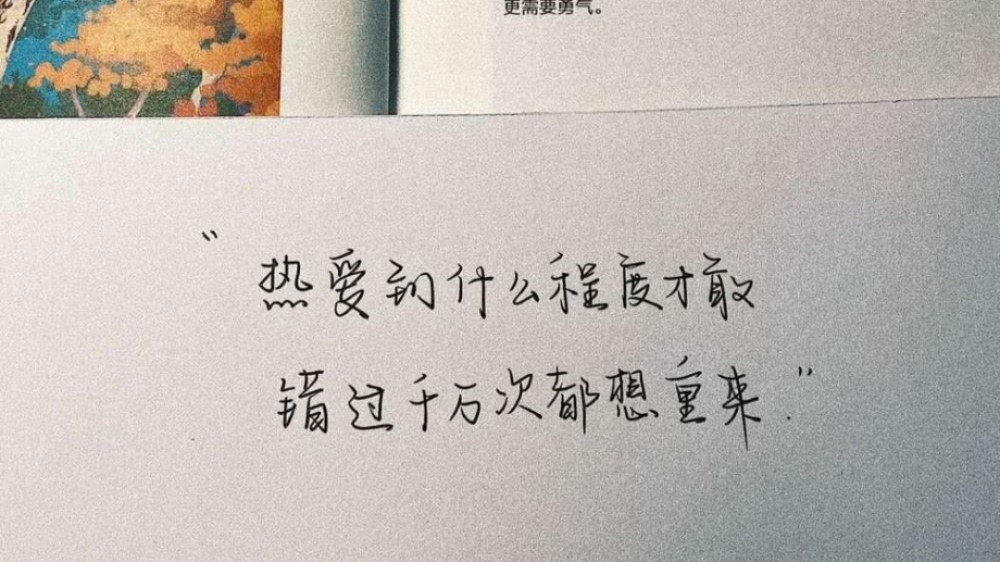 更需要勇气。
“热爱到什么程度才敢
错过千万次都想重来.”